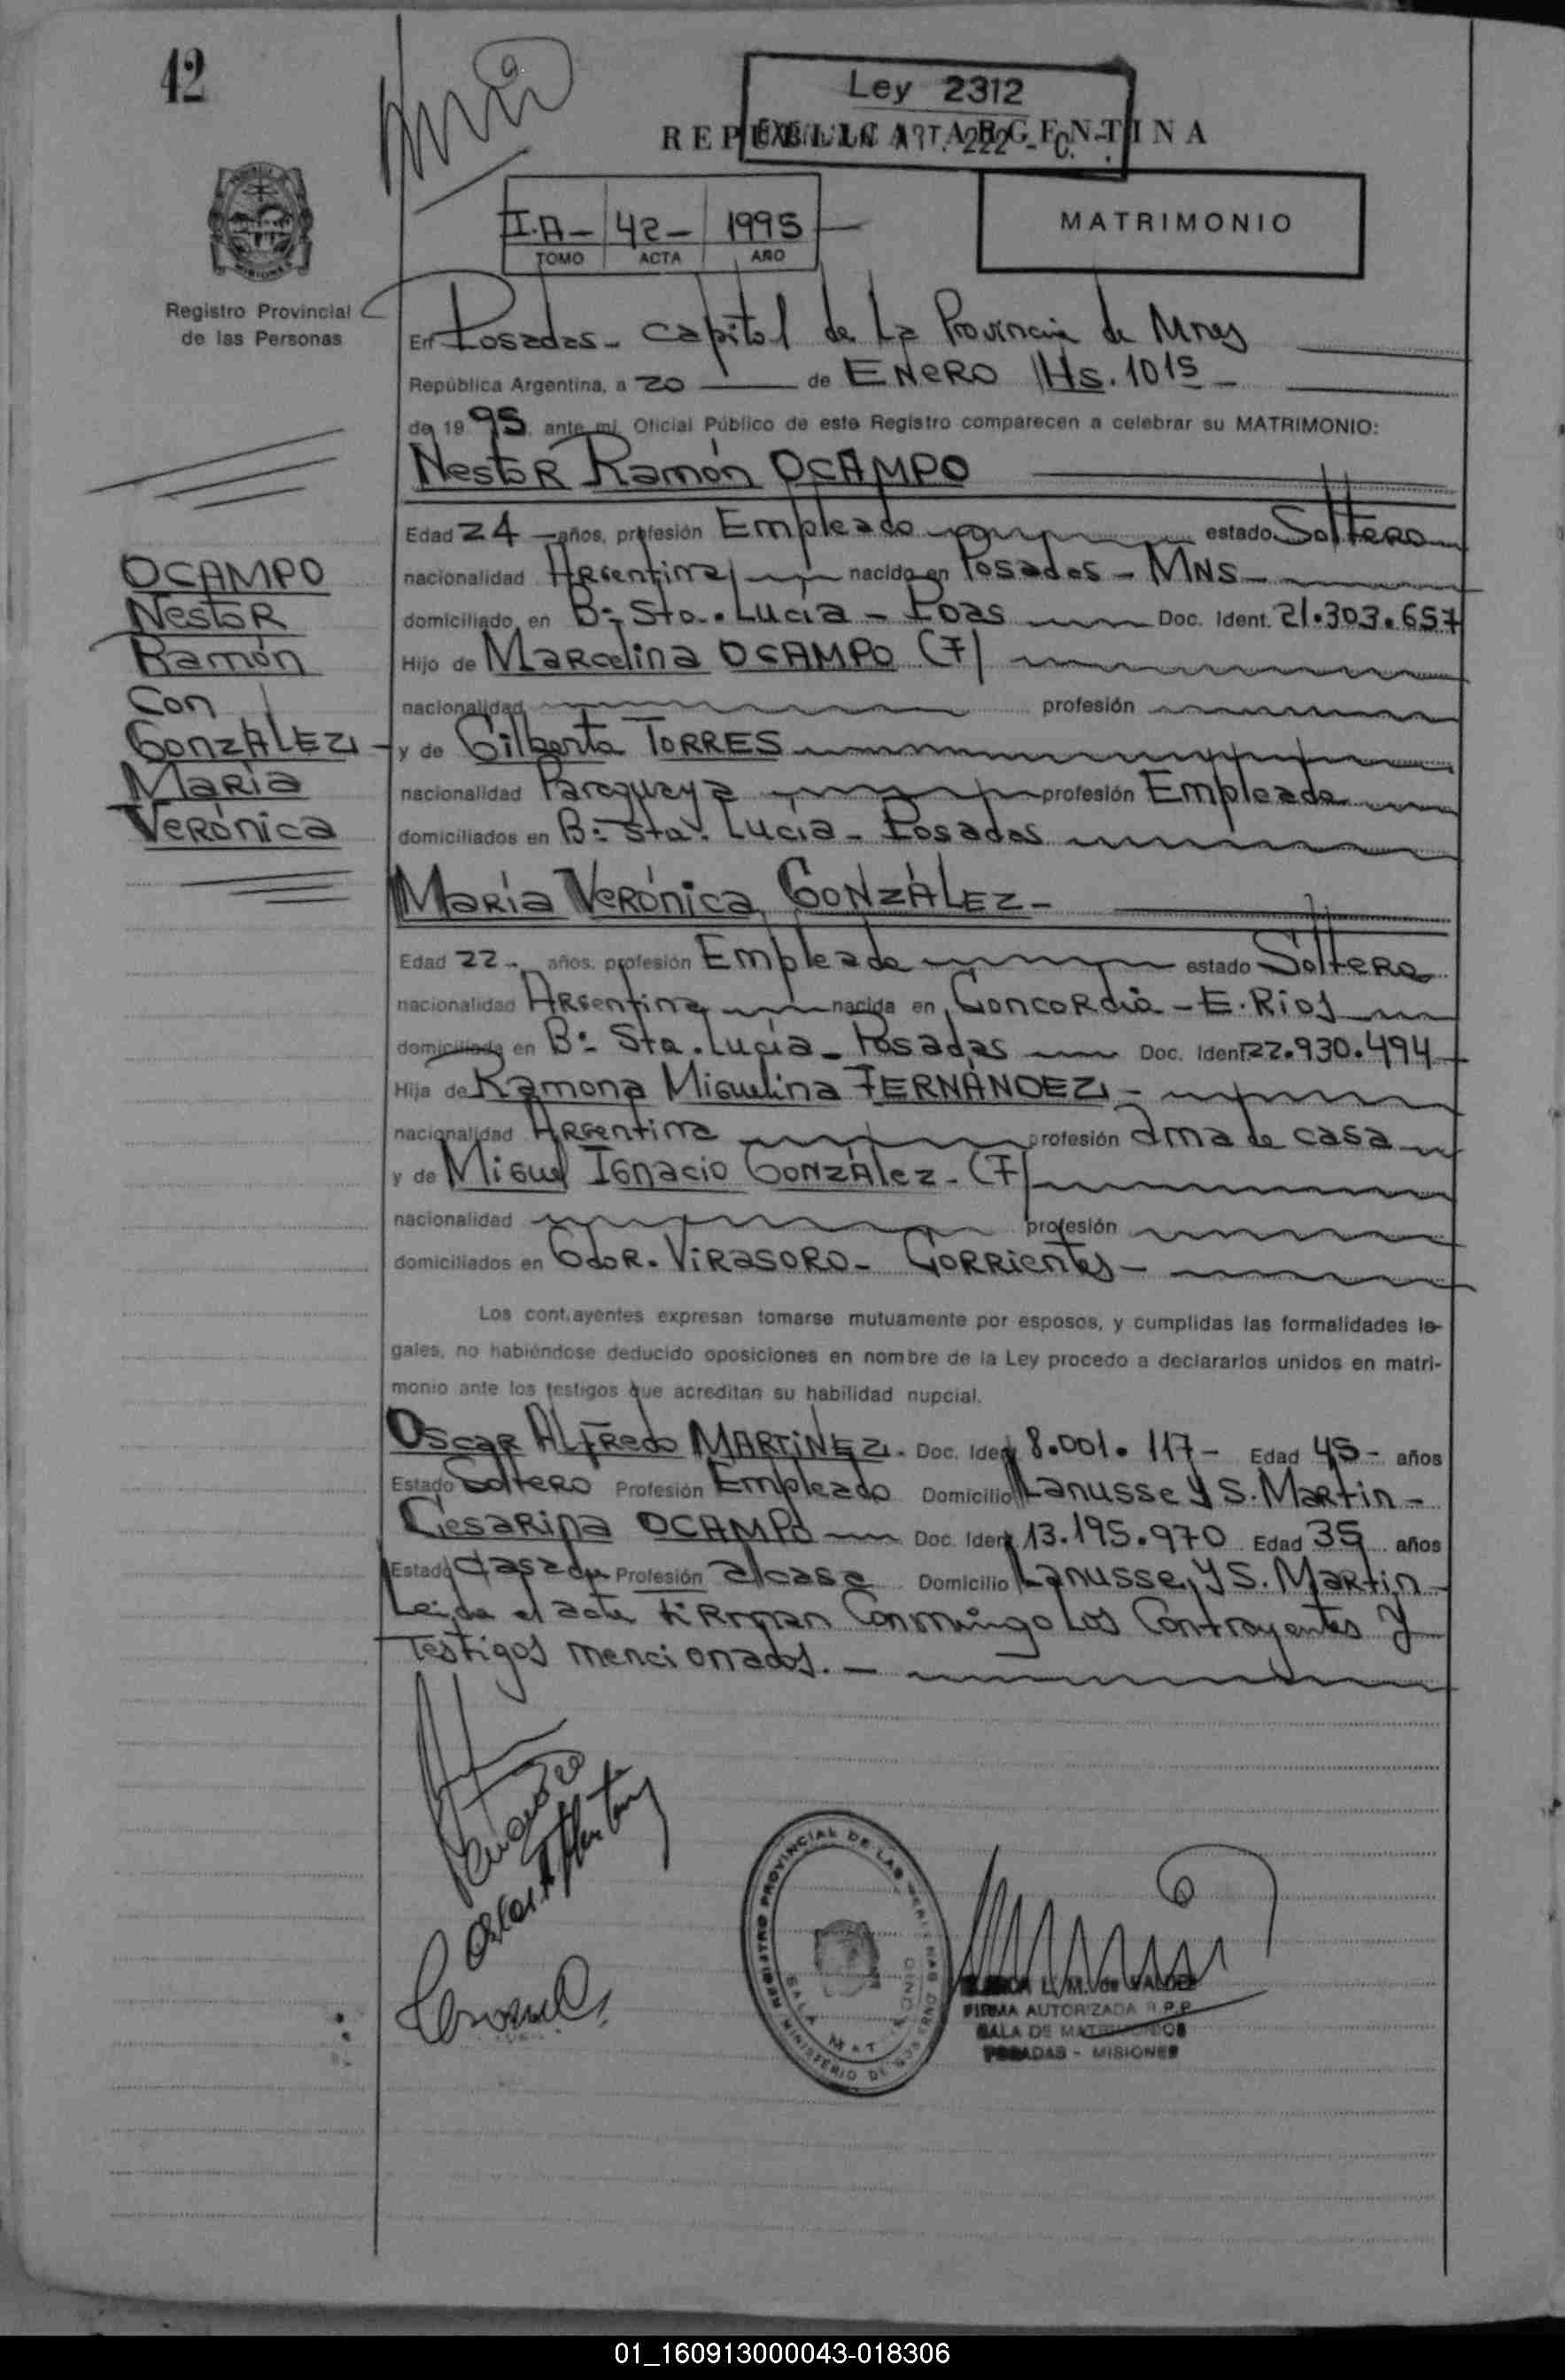 42
Ley 2312
REPUBLICA ARGENTINA
ART. 222
I.A- 42- 1995
TOMO ACTA AÑO
MATRIMONIO
Registro Provincial
de las Personas
En Posadas- capital de La Provincia de Mnes
República Argentina, a 20 de ENERO Hs. 1015-
de 1995 ante mi Oficial Público de este Registro comparecen a celebrar su MATRIMONIO:
Nestor Ramón OCAMPO
Edad 24 años, profesión Empleado estado Soltero
nacionalidad Argentina nacido en Posadas - MNS-
domiciliado en B:- Sta. Lucía - Pdas Doc. Ident. 21.303.657
Hijo de Marcelina OCAMPO (F)
nacionalidad profesión
y de Gilberta TORRES
nacionalidad Paraguaya profesión Empleada
domiciliados en B:- Sta. Lucía - Posadas
OCAMPO
Nestor
Ramón
Con
GonzALEZ
María
Verónica
María Verónica GONZÁLEZ-
Edad 22- años, profesión Empleada estado Soltera
nacionalidad Argentina nacida en Concordia - E. Ríos
domiciliada en B:- Sta. Lucía - Posadas Doc. Ident 22.930.494
Hija de Ramona Miguelina FERNÁNDEZ -
nacionalidad Argentina profesión ama de casa
y de Miguel Ignacio GONZÁlez - (F)
nacionalidad profesión
domiciliados en Gdor. Virasoro- Corrientes -
Los cont.ayentes expresan tomarse mutuamente por esposos, y cumplidas las formalidades le-
gales, no habiéndose deducido oposiciones en nombre de la Ley procedo a declararlos unidos en matri-
monio ante los testigos que acreditan su habilidad nupcial.
Oscar Alfredo MARTÍNEZ - Doc. Ident 8.001.117- Edad 45- años
Estado Soltero Profesión Empleado Domicilio Lanusse y S. Martín -
Cesarina OCAMPO Doc. Ident 13.195.970 Edad 35 años
Estado Casada Profesión a/casa Domicilio Lanusse y S. Martin
Leída el acta Firman Conmingo Los Contrayentes y
Testigos mencionados. -
REGISTRO PROVINCIAL DE LAS PERSONAS
MINISTERIO DE GOBIERNO
SALA MAT
L. M. de VALDEZ
FIRMA AUTORIZADA R.P.P.
SALA DE MATRIMONIOS
POSADAS - MISIONES
01_160913000043-018306